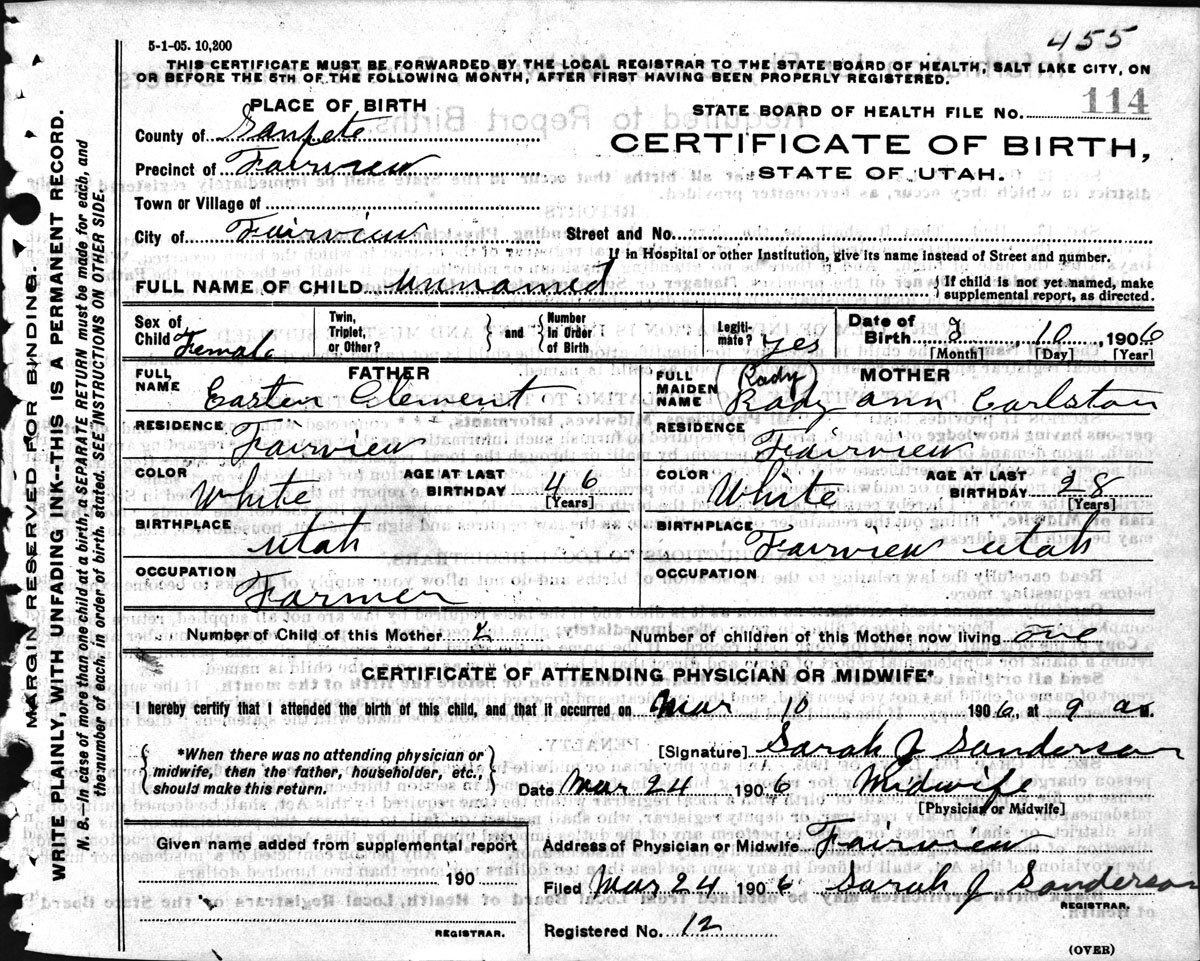 455
5-1-05. 10,200
THIS CERTIFICATE MUST BE FORWARDED BY THE LOCAL REGISTRAR TO THE STATE BOARD OF HEALTH, SALT LAKE CITY, ON
OR BEFORE THE 5TH OF THE FOLLOWING MONTH, AFTER FIRST HAVING BEEN PROPERLY REGISTERED.
PLACE OF BIRTH
STATE BOARD OF HEALTH FILE NO. 114
County of Sanpete
CERTIFICATE OF BIRTH,
Precinct of Fairview
STATE OF UTAH.
Town or Village of
City of Fairview Street and No.
If in Hospital or other Institution, give its name instead of Street and number.
FULL NAME OF CHILD unnamed { If child is not yet named, make supplemental report, as directed.
Sex of Child Female Twin, Triplet, or Other? } and { Number In Order of Birth Legiti- mate? yes Date of Birth 3, 10, 1906
[Month] [Day] [Year]
FATHER
MOTHER
FULL NAME Easten Clement
FULL MAIDEN NAME (Rady) Rady ann Carlston
RESIDENCE Fairview
RESIDENCE Fairview
COLOR White AGE AT LAST BIRTHDAY 46 [Years]
COLOR White AGE AT LAST BIRTHDAY 28 [Years]
BIRTHPLACE Utah
BIRTHPLACE Fairview Utah
OCCUPATION Farmer
OCCUPATION
Number of Child of this Mother 2 Number of children of this Mother now living one
CERTIFICATE OF ATTENDING PHYSICIAN OR MIDWIFE*
I hereby certify that I attended the birth of this child, and that it occurred on Mar 10 1906, at 9 a M.
{ *When there was no attending physician or midwife, then the father, householder, etc., should make this return. }
[Signature] Sarah J Sanderson
Date Mar 24 1906 Midwife
[Physician or Midwife]
Given name added from supplemental report
190
REGISTRAR.
Address of Physician or Midwife Fairview
Filed Mar 24 1906 Sarah J Sanderson
REGISTRAR.
Registered No. 12
(OVER)
MARGIN RESERVED FOR BINDING.
WRITE PLAINLY, WITH UNFADING INK--THIS IS A PERMANENT RECORD.
N. B.--In case of more than one child at a birth, a SEPARATE RETURN must be made for each, and
the number of each, in order of birth, stated. SEE INSTRUCTIONS ON OTHER SIDE.